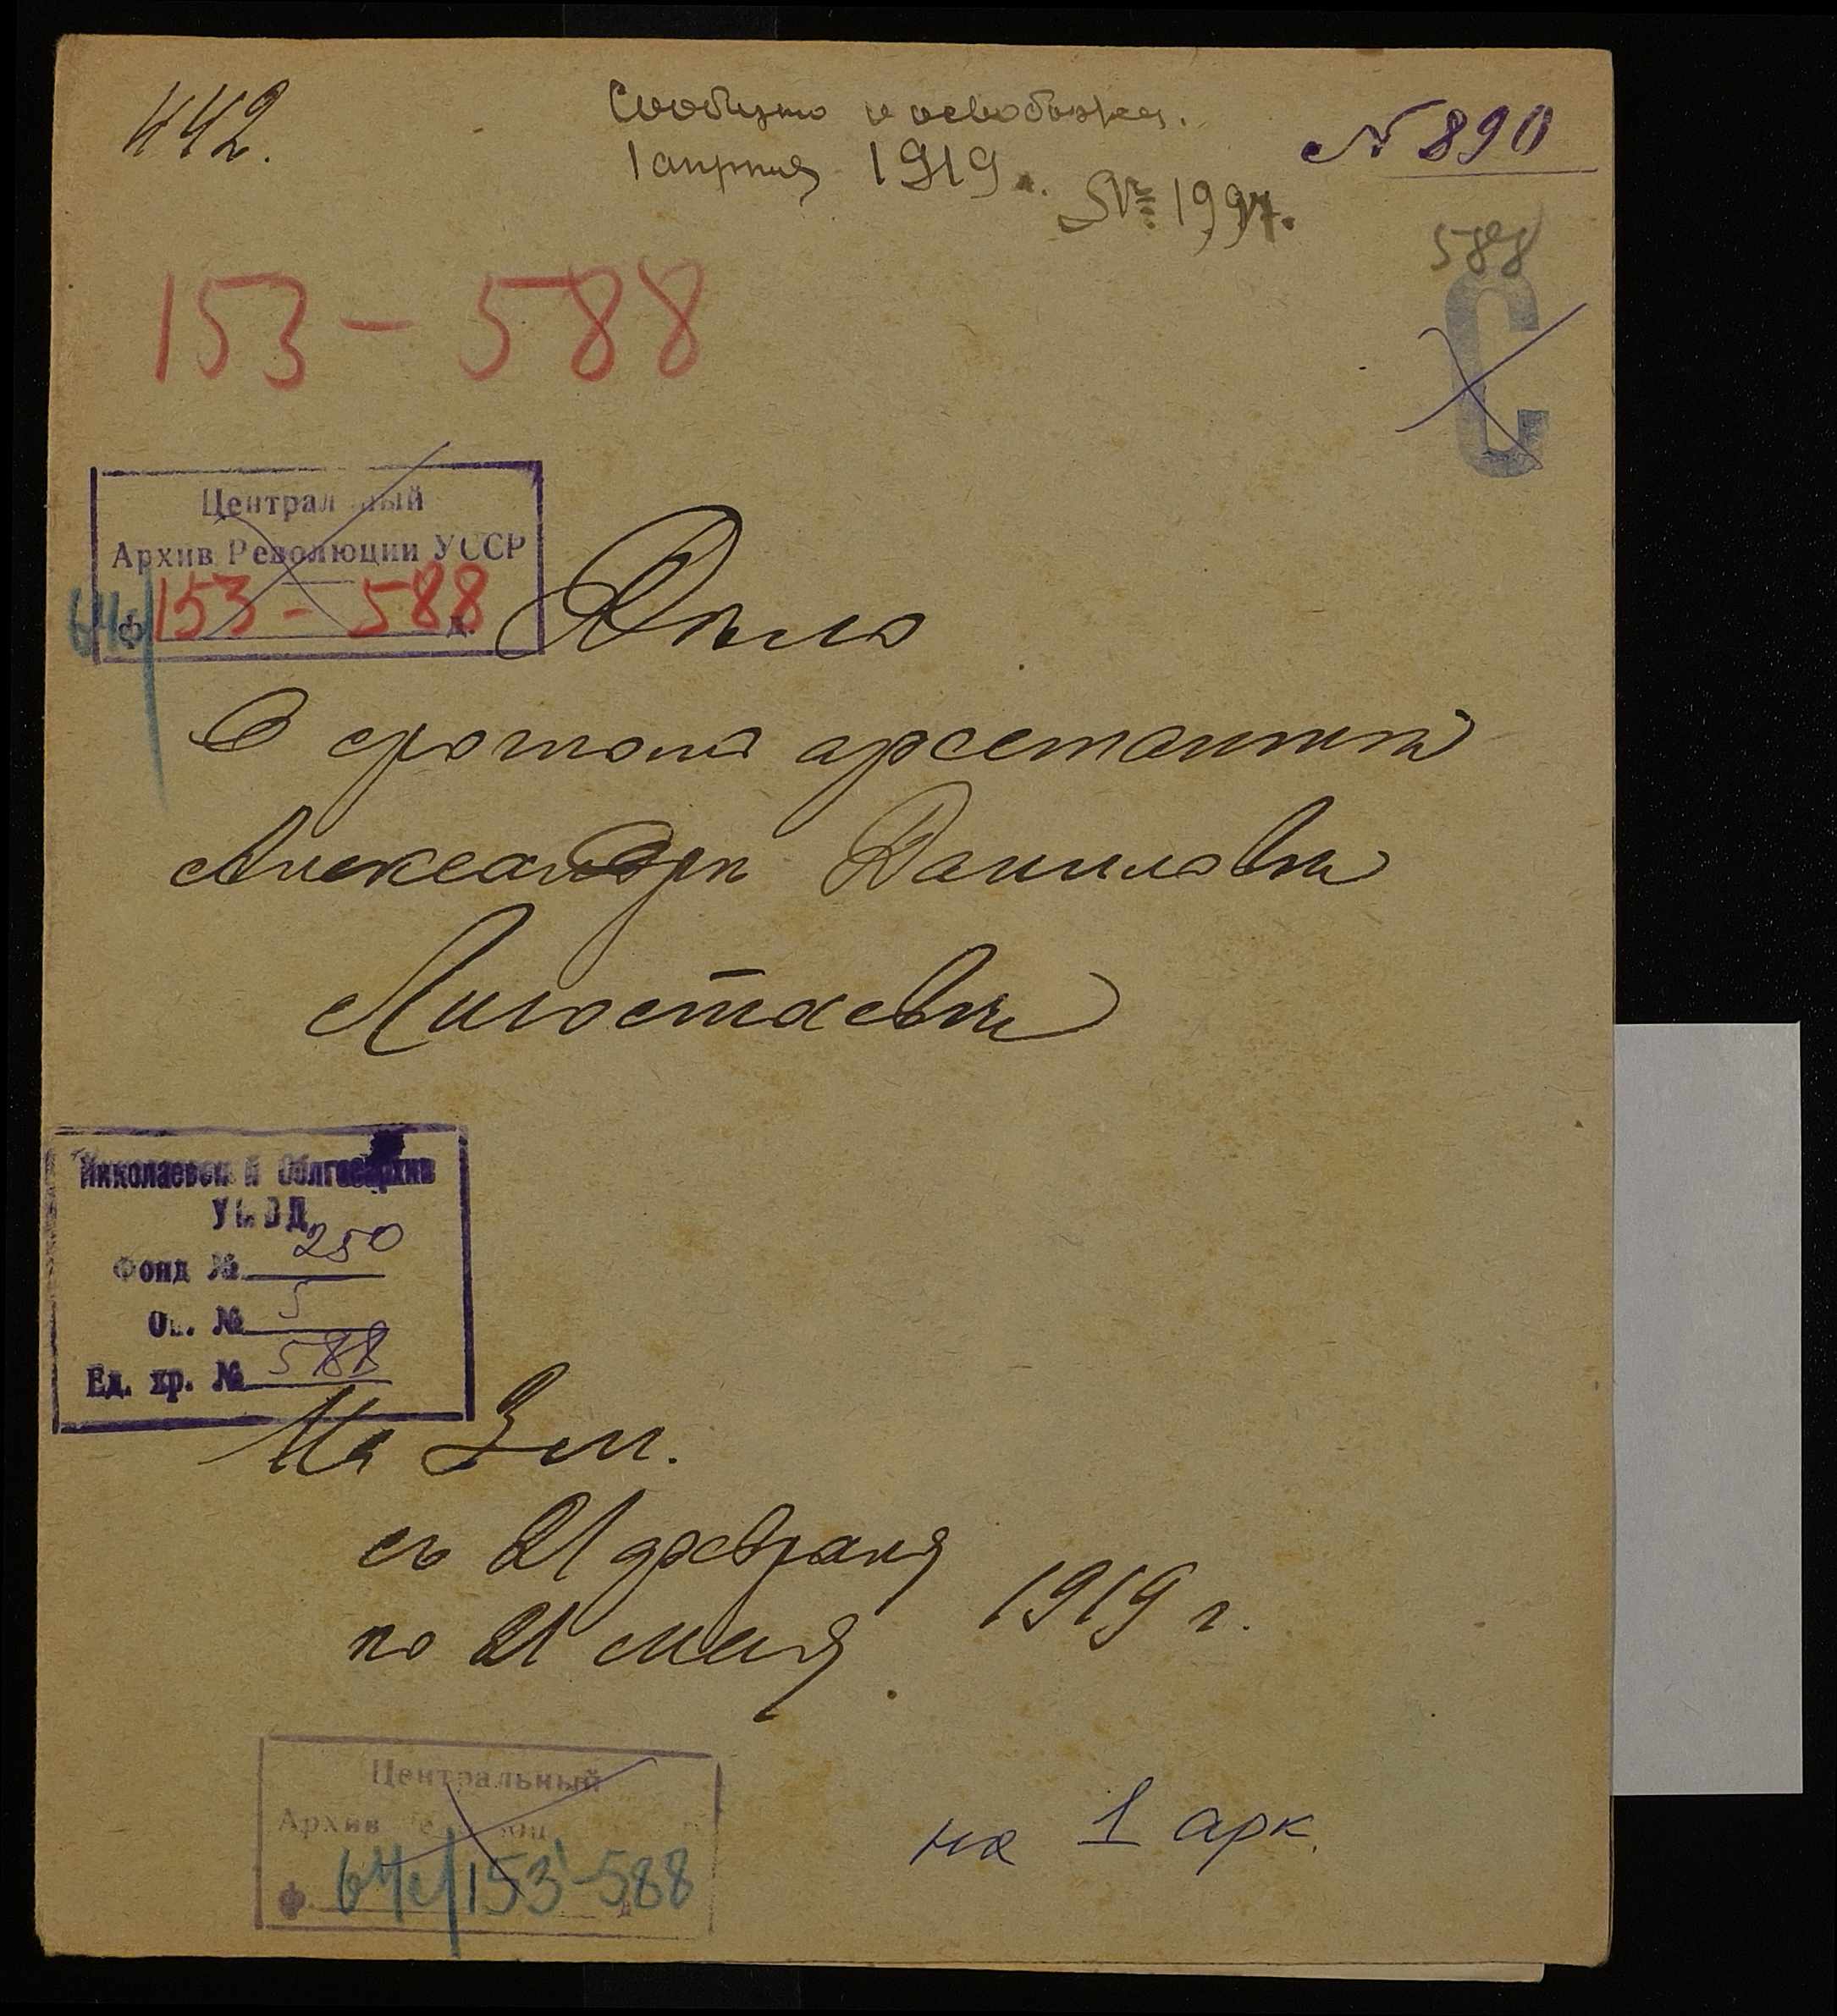 442.
Сообщено о освобожден.
1 апреля 1919 г. № 1997.
N 890
588
С
153 – 588
Центральный
Архив Революции УССР
ф. 153 – 588 д.
Дѣло
О срочномъ арестантѣ
Александрѣ Даниловѣ
Николаевский Облгосархив
УМВД
Фонд № 250
Оп. № 5
Ед. хр. № 588
На 3 м.
съ 21 февраля
по 21 мая 1919 г.
Центральный
Архив
ф. 153 – 588
на 1 арк.